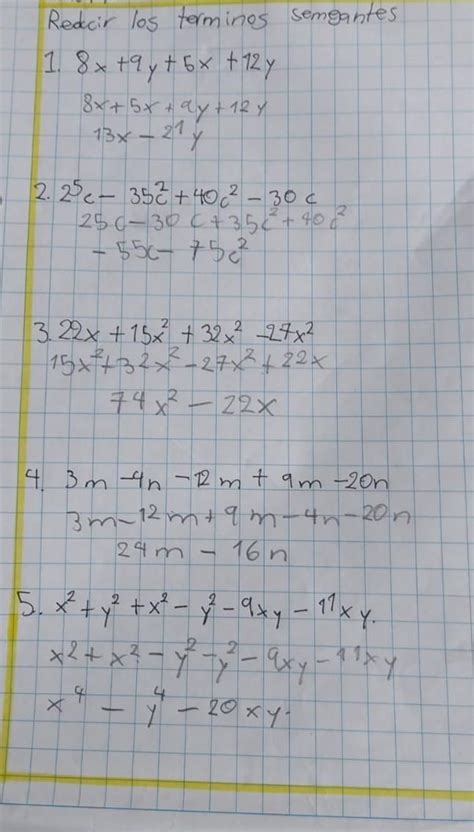 Reducir los terminos semegantes
1. 8x + 9y + 5x + 12y
8x + 5x + 9y + 12y
13x - 21y
2. 25c - 35c² + 40c² - 30c
25c - 30c + 35c² + 40c²
- 55c - 75c²
3. 22x + 15x² + 32x² - 27x²
15x² + 32x² - 27x² + 22x
74x² - 22x
4. 3m - 4n - 12m + 9m - 20n
3m - 12m + 9m - 4n - 20n
24m - 16n
5. x² + y² + x² - y² - 9xy - 11xy.
x² + x² - y² - y² - 9xy - 11xy
x⁴ - y⁴ - 20xy.